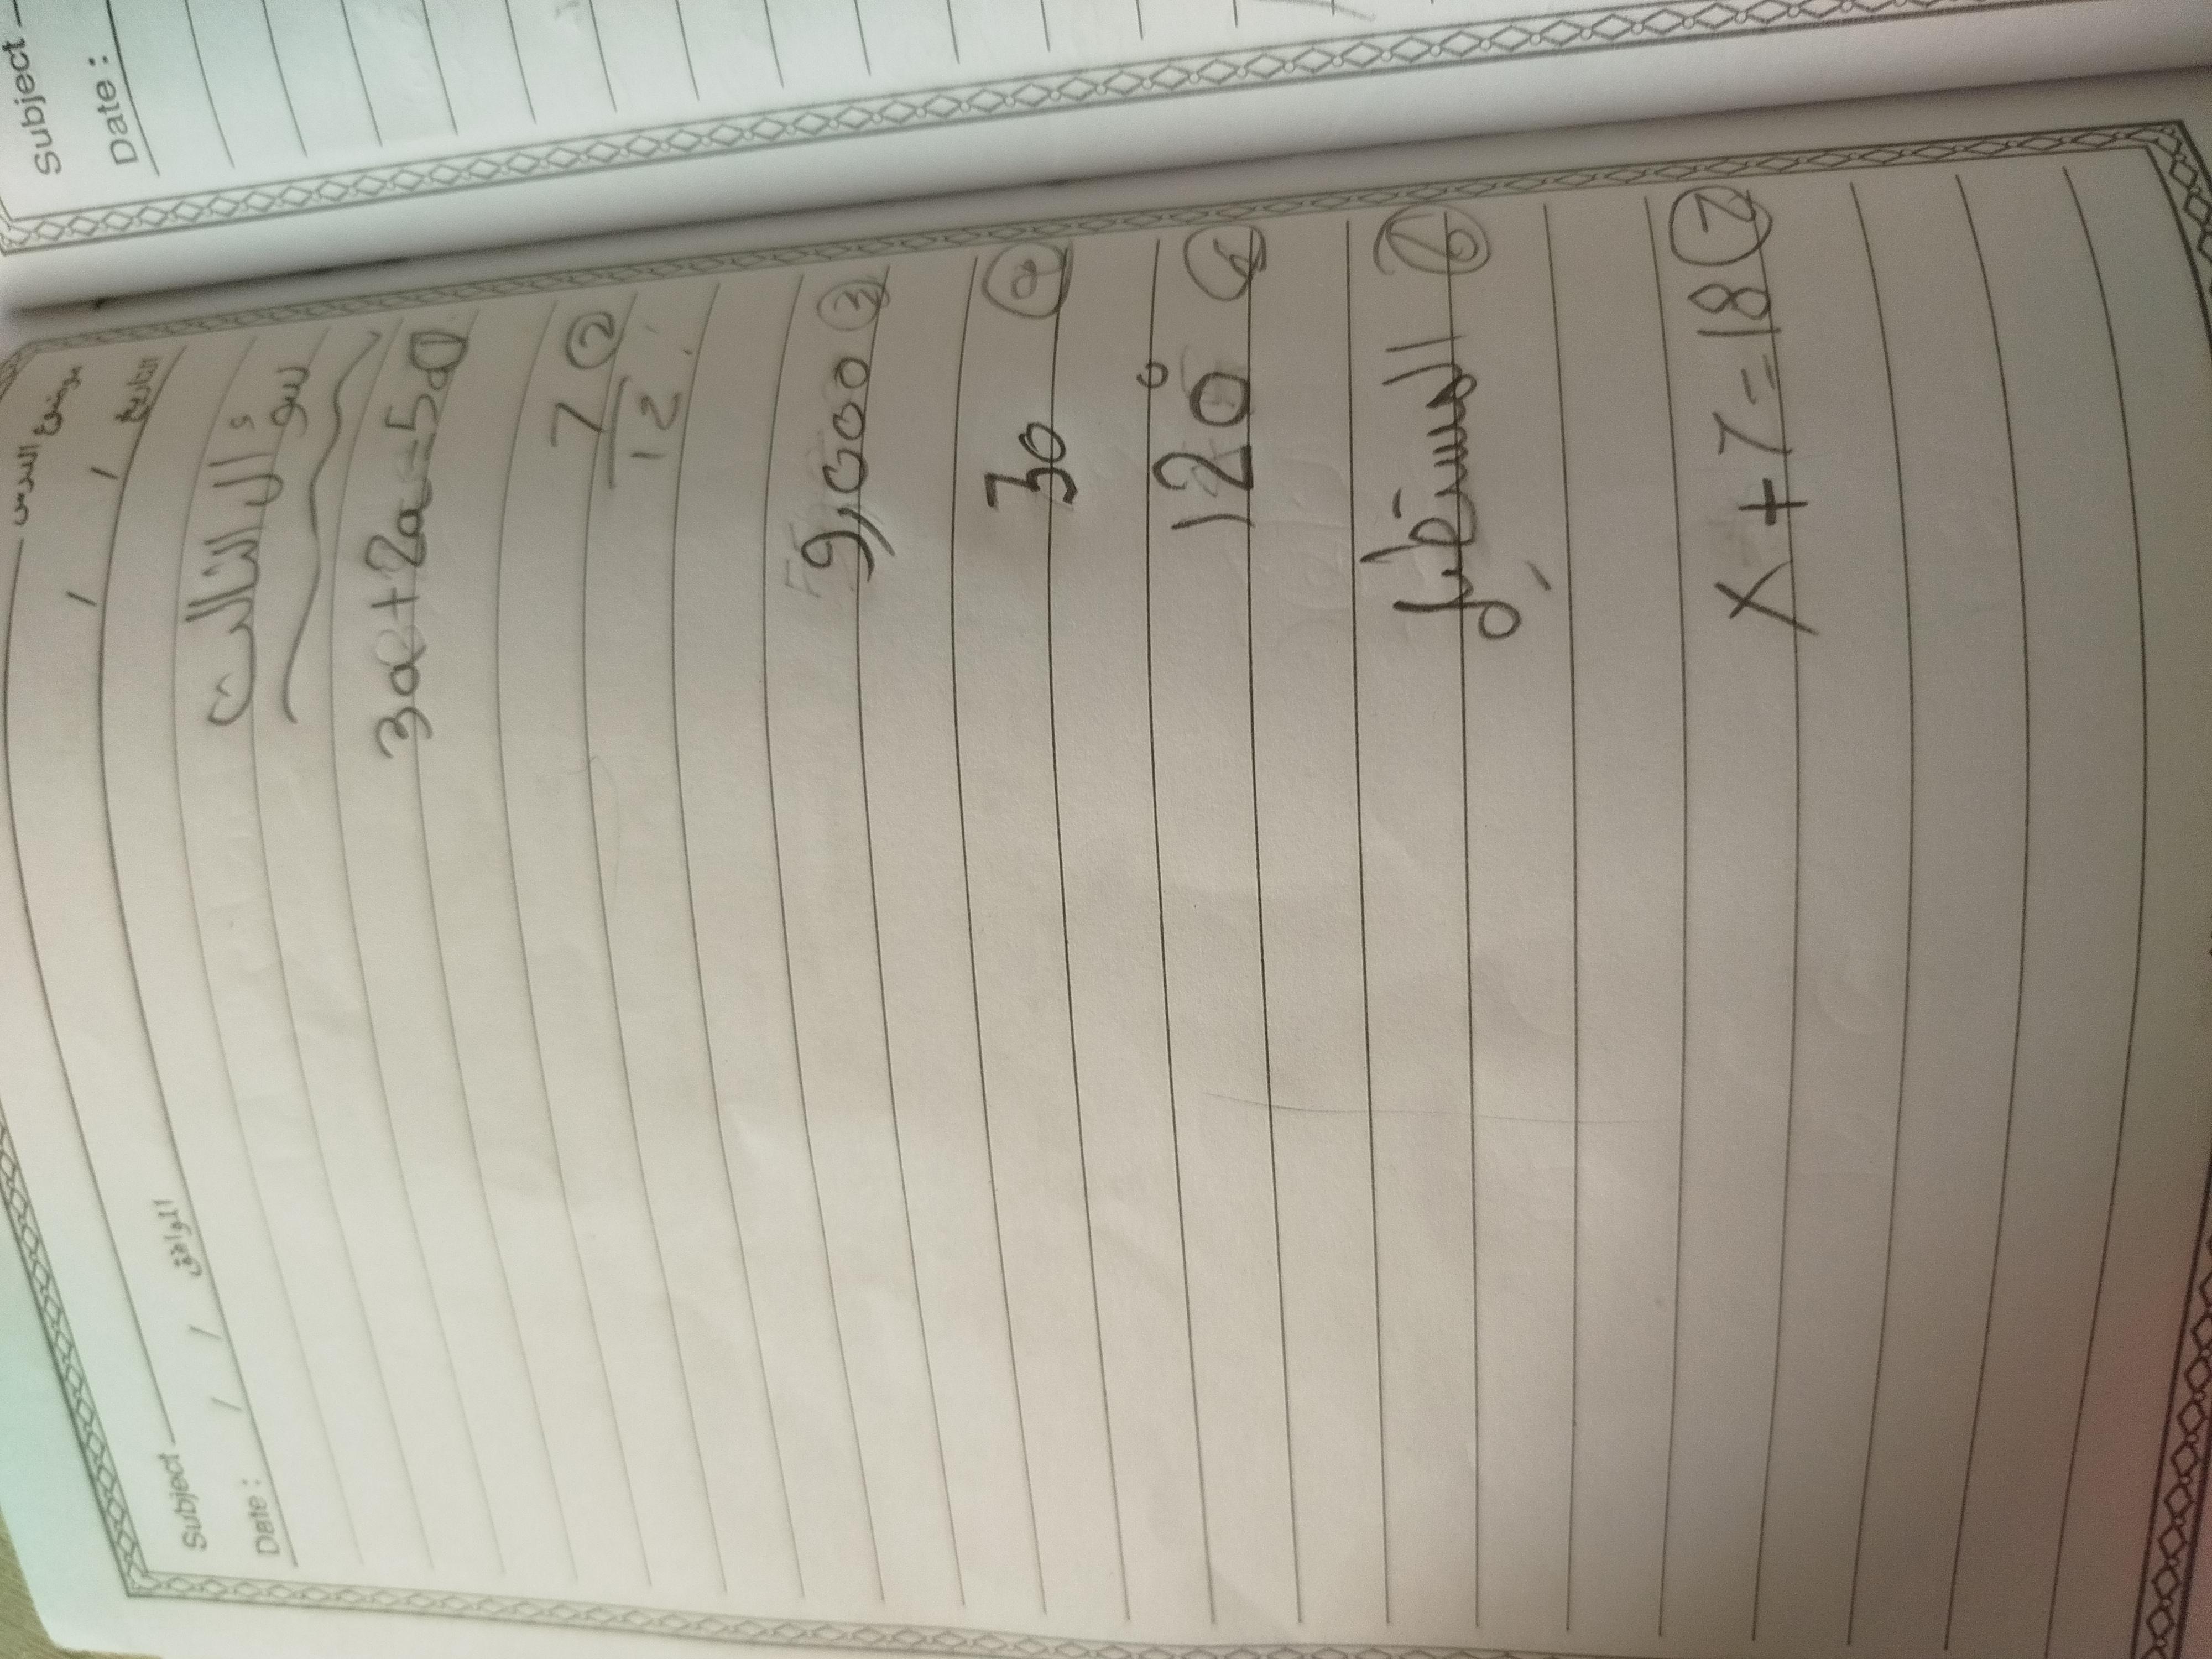 Subject
Date :
Subject موضوع الدرس
Date : / / الموافق / / التاريخ
سؤال الثالث
3a+2a=5a ①
7/12 ②
9,000 ③
30 ④
120°
المستطيل ⑥
x+7=18 ⑦